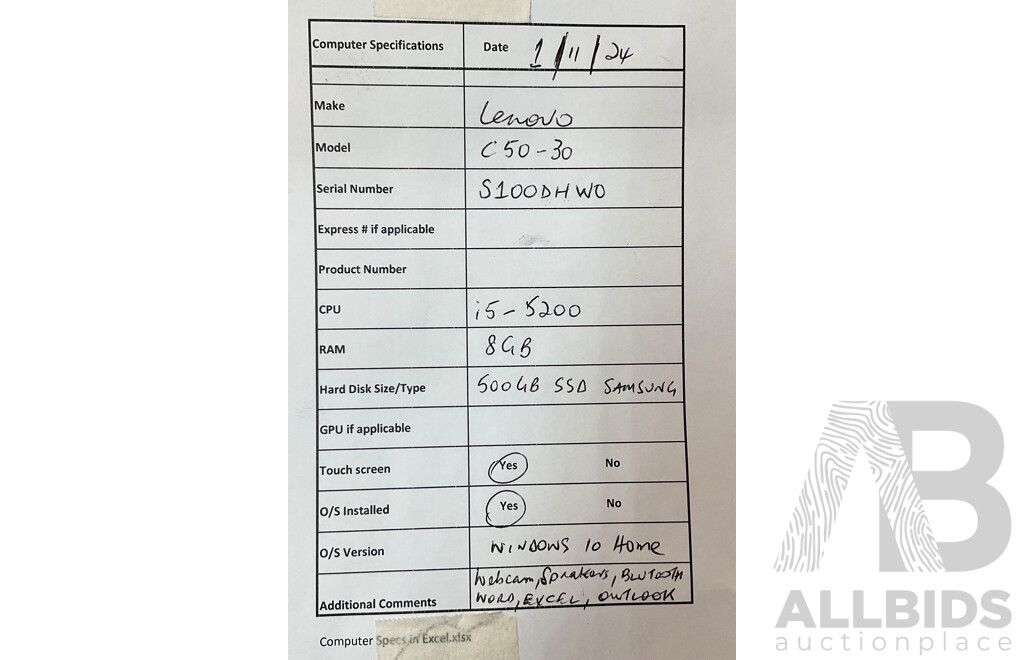 Computer Specifications Date 1/11/24
Make Lenovo
Model C50-30
Serial Number S100DHW0
Express # if applicable
Product Number
CPU i5-5200
RAM 8GB
Hard Disk Size/Type 500GB SSD SAMSUNG
GPU if applicable
Touch screen Yes No
O/S Installed Yes No
O/S Version WINDOWS 10 Home
Webcam, Speakers, BLUTOOTH
Additional Comments WORD, EXCEL, OUTLOOK
Computer Specs in Excel.xlsx
AB
ALLBIDS
auctionplace